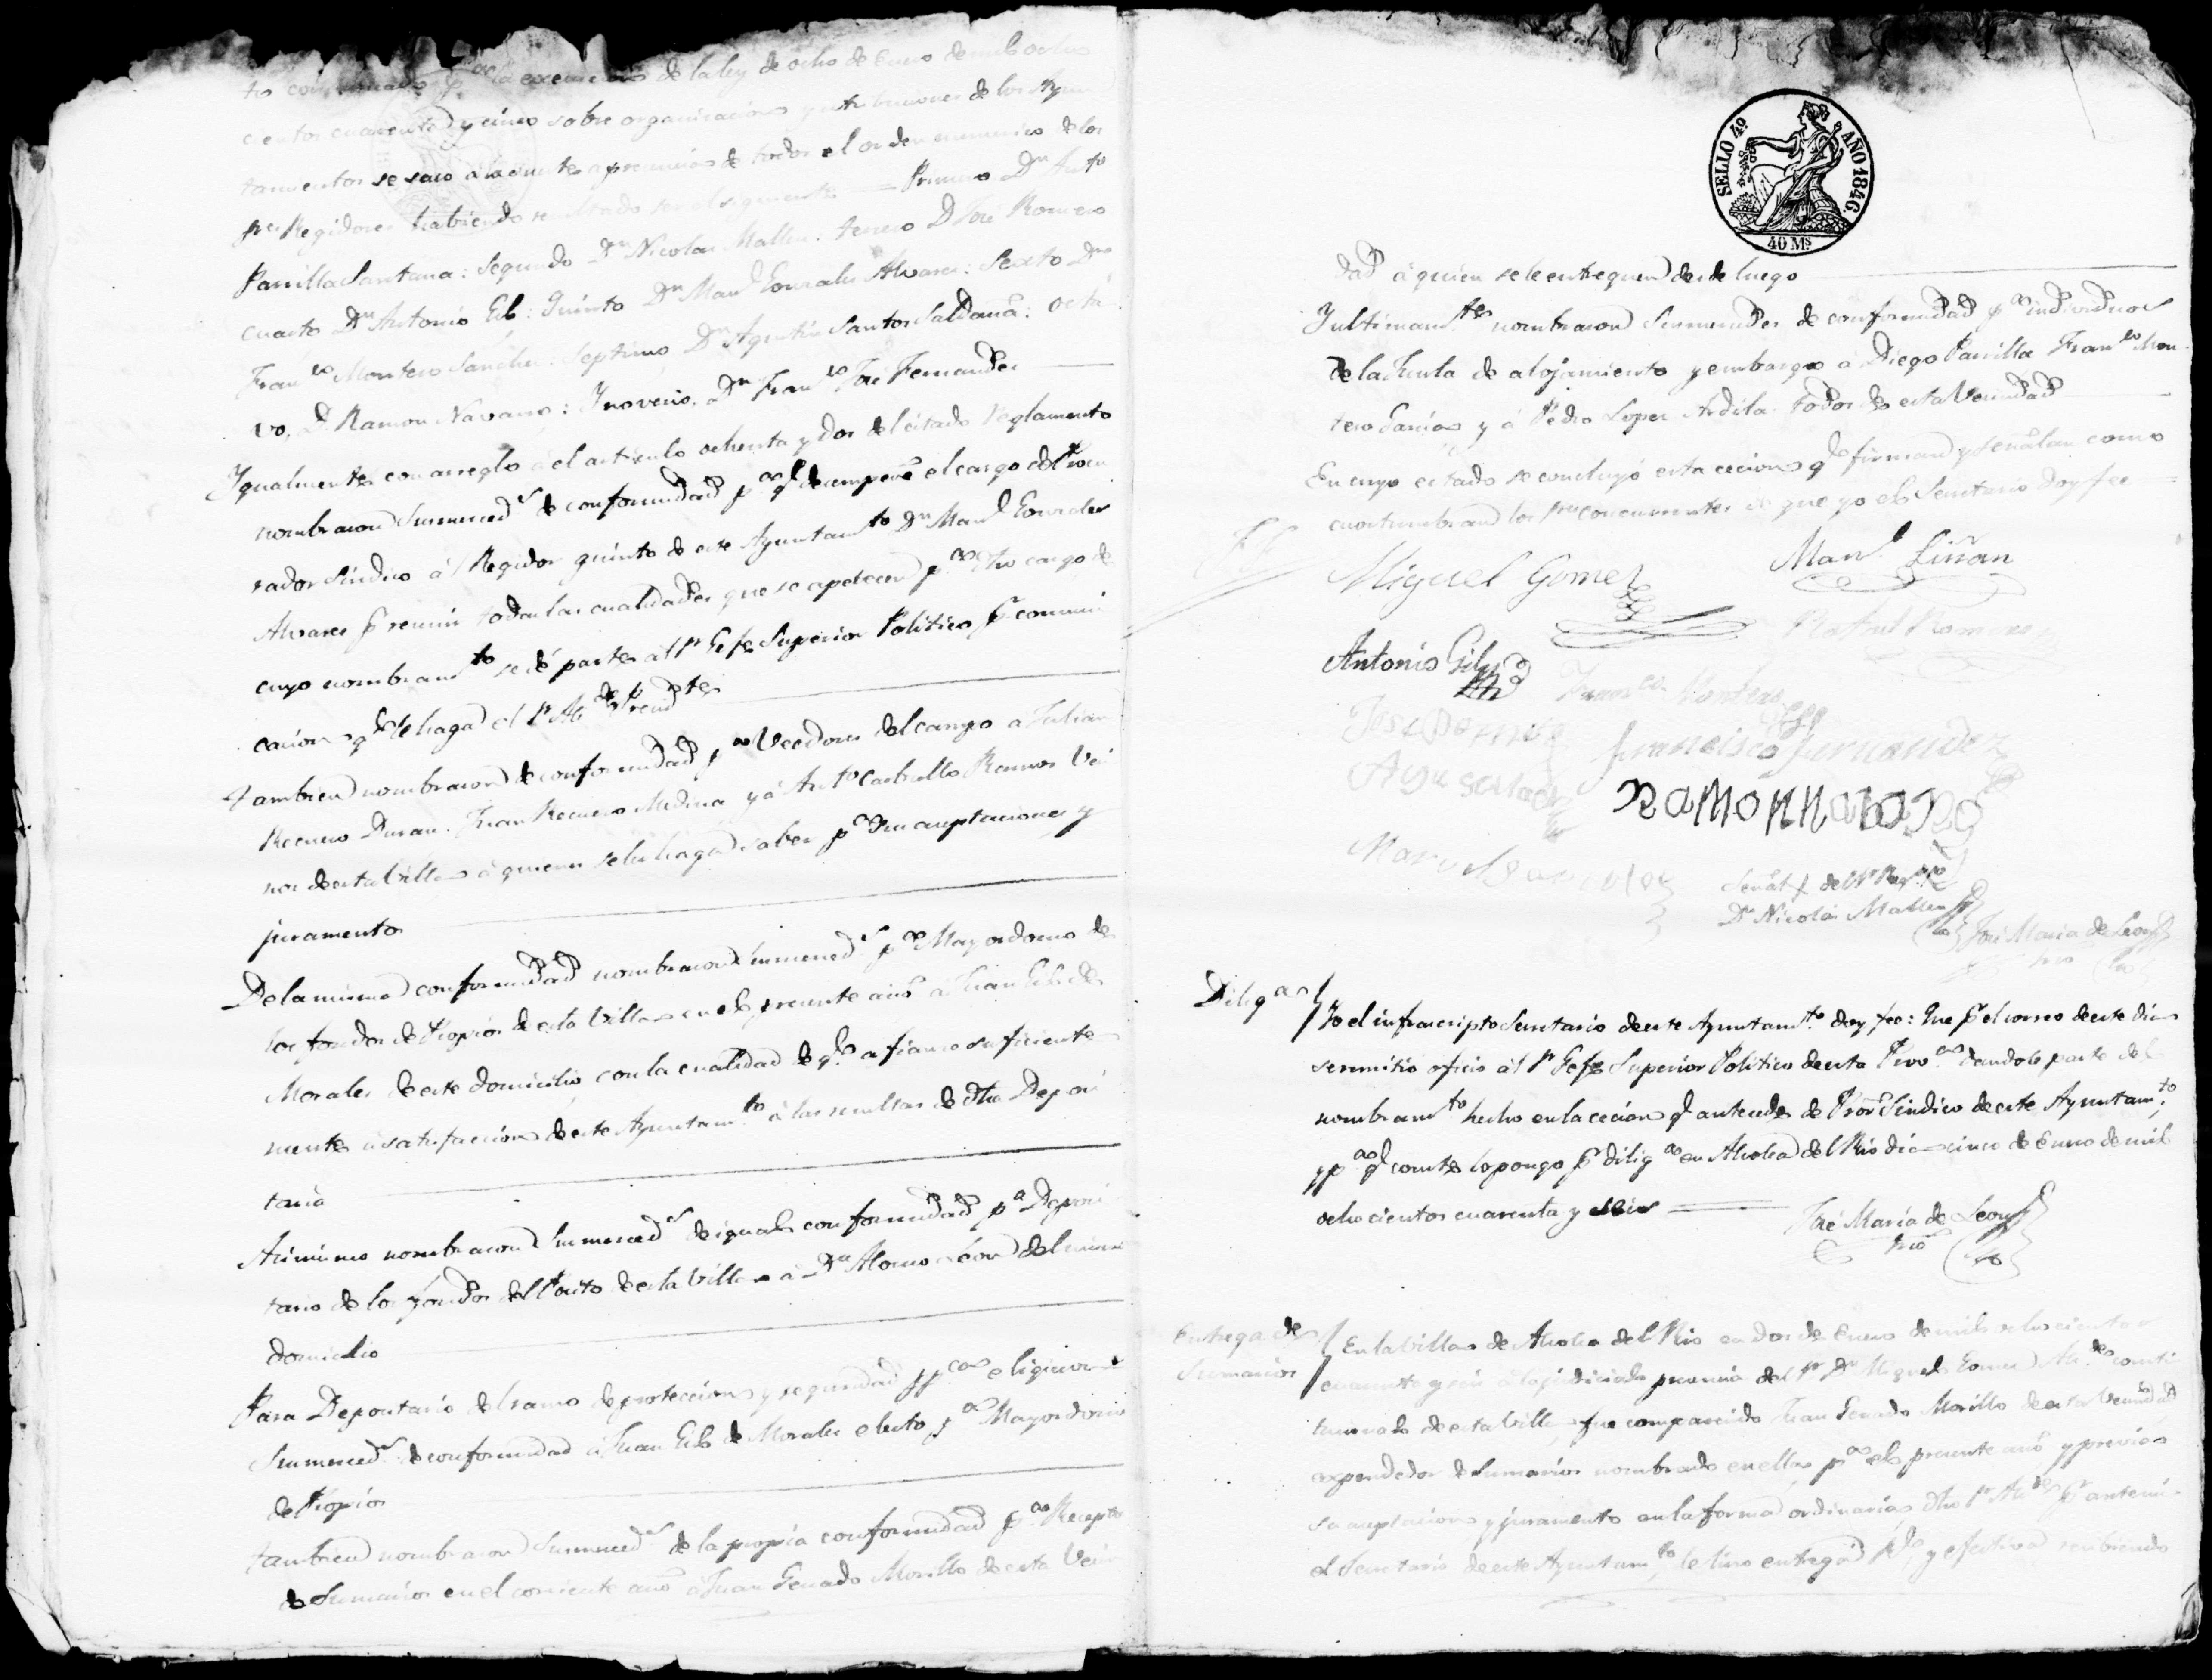 de la ley de ocho de Enero de mil ocho
cientos cuarenta y cinco sobre organizacion y atribuciones de los Ayun
tamientos se saco a la suerte a presencia de todos el orden numerico de los
Sres Regidores habiendo resultado ser el siguiente = Primero Dn Anto
Parrilla Santana: Segundo Dn Nicolas Mallen: tersero D José Romero
cuarto Dn Antonio Gil: Quinto Dn Manl Gonzales Alvares: Sexto Dn
Franco Montero Sanches: Septimo, Dn Agustin Santos Saldaña: octa
vo, D. Ramon Navarro: Y noveno, Dn Franco José Fernandes
Ygualmente con arreglo á el articulo ochenta y dos del citado Reglamento
nombraron Sumerceds de conformidad pa ql desempeñe el cargo de Procu
rador Sindico á el Regidor quinto de este Ayuntamto Dn Manl Gonzales
Alvares pr reunir todas las cualidades que se apetecen pa dho cargo de
cuyo nombramto se dé parte al Sr Gefe Superior Politico pr comuni
cacion qe le haga el Sr Alde Presidte
Tambien nombraron de conformidad pa Veedores del campo a Julian
Recuero Duran, Juan Recuero Medina y á Anto Carballo Ramos Veci
nos de esta Villa á quienes se les haga saber pa su aceptacion y
juramento
De la misma conformidad nombraron Sumerceds pa Mayordomo de
los fondos de Propios de esta Villa en el presente año a Juan Gil de
Morales de este domicilio, con la cualidad de qe afiance suficiente
mente á satisfaccion de este Ayuntamto á las resultas de dha Deposi
taria
Asimismo nombraron Sumerceds de igual conformidad pa Deposi
tario de los fondos del Posito de esta Villa á Dn Alonso Leon del mismo
domicilio
Para Depositario del ramo de proteccion y seguridad ppca eligieron
Sumerceds de conformidad á Juan Gil de Morales electo pa Mayordomo
de Propios
tambien nombraron Sumerceds de la propia conformidad pa Receptor
de Sumarios en el corriente año á Juan Genado Morillo de esta Vecin
SELLO 4º AÑO 1846.
40 Ms
dad á quien se le entreguen desde luego
Y ultimamte nombraron Sumerceds de conformidad pa individuos
de la Junta de alojamiento y embargo a Diego Parrilla Franco Mon
tero Garcias y á Pedro Lopez Ardila todos de esta Vecindad
En cuyo estado se concluyó esta cecion qe firman y señalan como
acostumbran los Sres concurrentes de que yo el Secretario doy fee
Miguel Gomez
Manl Liñan
Antonio Gil
Rafael Romero
Franco Montero
Francisco Fernandez
Ramon nabaro
Señal + del Sr Regor
Dn Nicolás Mallen
José Maria de Leon
Srio
Diliga
Yo el infrascripto Secretario de este Ayuntamto doy fee: Que pr el correo de este dia
se remitió oficio al Sr Gefe Superior Politico de esta Prova dandole parte del
nombramto hecho en la cecion ql antecede de Pror Sindico de este Ayuntamto,
y pa ql conste lo pongo pr diliga en Alcolea del Rio dia cinco de Enero de mil
ocho cientos cuarenta y seis =
José Maria de Leon
Srio
Entrega de
Sumarios
En la Villa de Alcolea del Rio en dos de Enero de mil ocho cientos
cuarenta y seis á la judicial presencia del Sr Dn Miguel Gomez Alde consti
tucional de esta Villa, fue comparecido Juan Genado Morillo de esta Vecindad
expendedor de Sumarios nombrado en ella pa el presente año y previa
su aceptacion y juramento en la forma ordinaria dho Sr Alde pr antemi
el Secretario de este Ayuntamto, le hizo entrega Rl y efectiva recibiendo